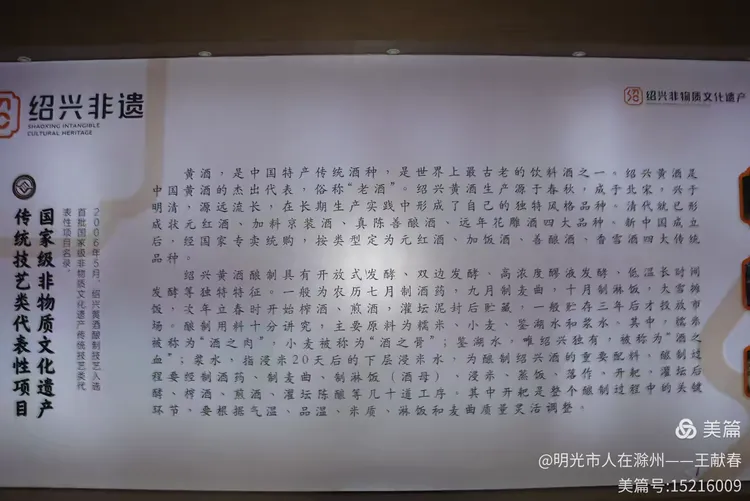 绍兴非遗
SHAOXING INTANGIBLE
CULTURAL HERITAGE
绍兴非物质文化遗产
国家级非物质文化遗产
传统技艺类代表性项目
2006年5月，绍兴黄酒酿制技艺入选
首批国家级非物质文化遗产传统技艺类代
表性项目名录。
黄酒，是中国特产传统酒种，是世界上最古老的饮料酒之一。绍兴黄酒是
中国黄酒的杰出代表，俗称“老酒”。绍兴黄酒生产源于春秋，成于北宋，兴于
明清，源远流长，在长期生产实践中形成了自己的独特风格品种。清代就已形
成状元红酒、加料京装酒、真陈善酿酒、远年花雕酒四大品种。新中国成立
后，经国家专卖统购，按类型定为元红酒、加饭酒、善酿酒、香雪酒四大传统
品种。
绍兴黄酒酿制具有开放式发酵、双边发酵、高浓度醪液发酵、低温长时间
发酵等独特特征。一般为农历七月制酒药，九月制麦曲，十月制淋饭，大雪摊
饭，次年立春时开始榨酒、煎酒，灌坛泥封后贮藏，一般贮存三年后才投放市
场。酿制用料十分讲究，主要原料为糯米、小麦、鉴湖水和浆水。其中，糯米
被称为“酒之肉”，小麦被称为“酒之骨”；鉴湖水，唯绍兴独有，被称为“酒之
血”；浆水，指浸米20天后的下层浸米水，为酿制绍兴酒的重要配料，酿制过
程要经制酒药、制麦曲、制淋饭（酒母）、浸米、蒸饭、落作、开耙、灌坛后
酵、榨酒、煎酒、灌坛陈酿等几十道工序。其中开耙是整个酿制过程中的关键
环节，要根据气温、品温、米质、淋饭和麦曲质量灵活调整。
美篇
@明光市人在滁州——王献春
美篇号:15216009